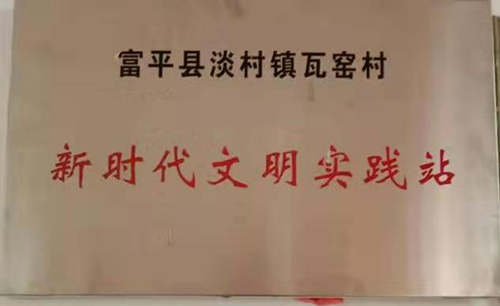 富平县淡村镇瓦窑村
新时代文明实践站